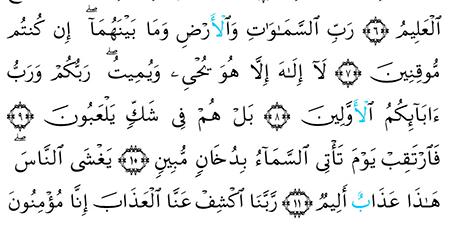 ٱلْعَلِيمُ ﴿٦﴾ رَبِّ ٱلسَّمَٰوَٰتِ وَٱلْأَرْضِ وَمَا بَيْنَهُمَآ ۖ إِن كُنتُم
مُّوقِنِينَ ﴿٧﴾ لَآ إِلَٰهَ إِلَّا هُوَ يُحْىِۦ وَيُمِيتُ ۖ رَبُّكُمْ وَرَبُّ
ءَابَآئِكُمُ ٱلْأَوَّلِينَ ﴿٨﴾ بَلْ هُمْ فِى شَكٍّ يَلْعَبُونَ ﴿٩﴾
فَٱرْتَقِبْ يَوْمَ تَأْتِى ٱلسَّمَآءُ بِدُخَانٍ مُّبِينٍ ﴿١٠﴾ يَغْشَى ٱلنَّاسَ ۖ
هَٰذَا عَذَابٌ أَلِيمٌ ﴿١١﴾ رَّبَّنَا ٱكْشِفْ عَنَّا ٱلْعَذَابَ إِنَّا مُؤْمِنُونَ